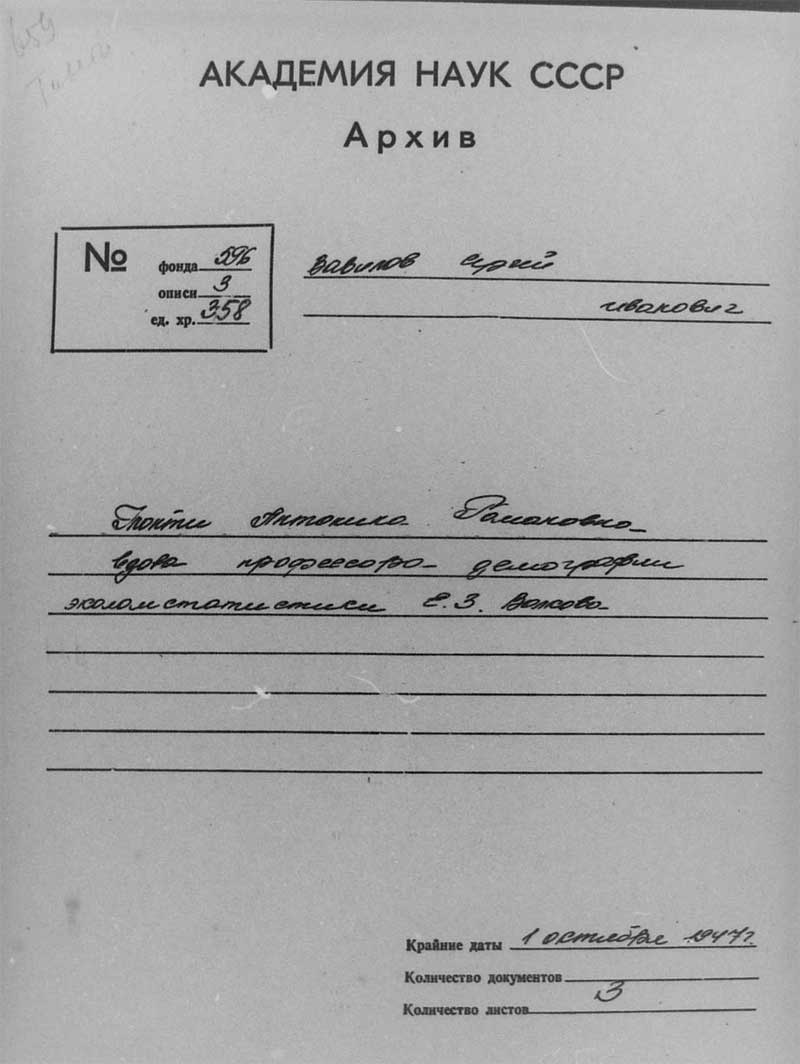 659
АКАДЕМИЯ НАУК СССР
Архив
№
фонда 596
описи 3
ед. хр. 358
Вавилов Сергей
Иванович
Антонина Романовна
вдова профессора демографии
Е. З. Волкова
Крайние даты 1 октября 1947 г.
Количество документов
Количество листов 3